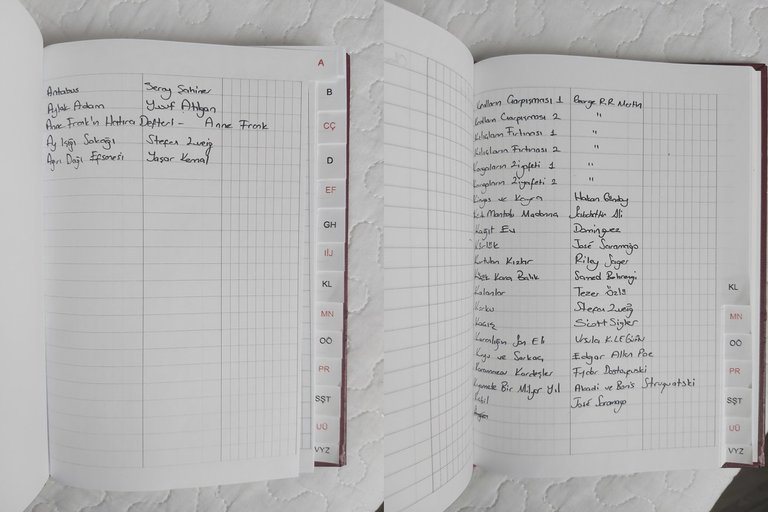 Antabus Seray Şahiner
Aylak Adam Yusuf Atılgan
Anne Frank'ın Hatıra Defteri - Anne Frank
Ay Işığı Sokağı Stefan Zweig
Ağrı Dağı Efsanesi Yaşar Kemal
A
B
CÇ
D
EF
GH
Iİ
KL
MN
OÖ
PR
SŞT
UÜ
VYZ
Kralların Çarpışması 1 George R.R. Martin
Kralların Çarpışması 2 "
Kılıçların Fırtınası 1 "
Kılıçların Fırtınası 2 "
Kargaların Ziyafeti 1 "
Kargaların Ziyafeti 2 "
Kinyas ve Kayra Hakan Günday
Kürk Mantolu Madonna Sabahattin Ali
Kağıt Ev Dominguez
Körlük José Saramago
Kurtulan Kızlar Riley Sager
Küçük Kara Balık Samed Behrengi
Kalanlar Tezer Özlü
Korku Stefan Zweig
Scott Sigler
Karanlığın Sol Eli Ursula K. LE Guin
Kuyu ve Sarkaç Edgar Allen Poe
Karamazov Kardeşler Fyodor Dostoyevski
Kıyamete Bir Milyar Yıl Arkadi ve Boris Strugatski
Kabil José Saramago
KL
MN
OÖ
PR
SŞT
UÜ
VYZ